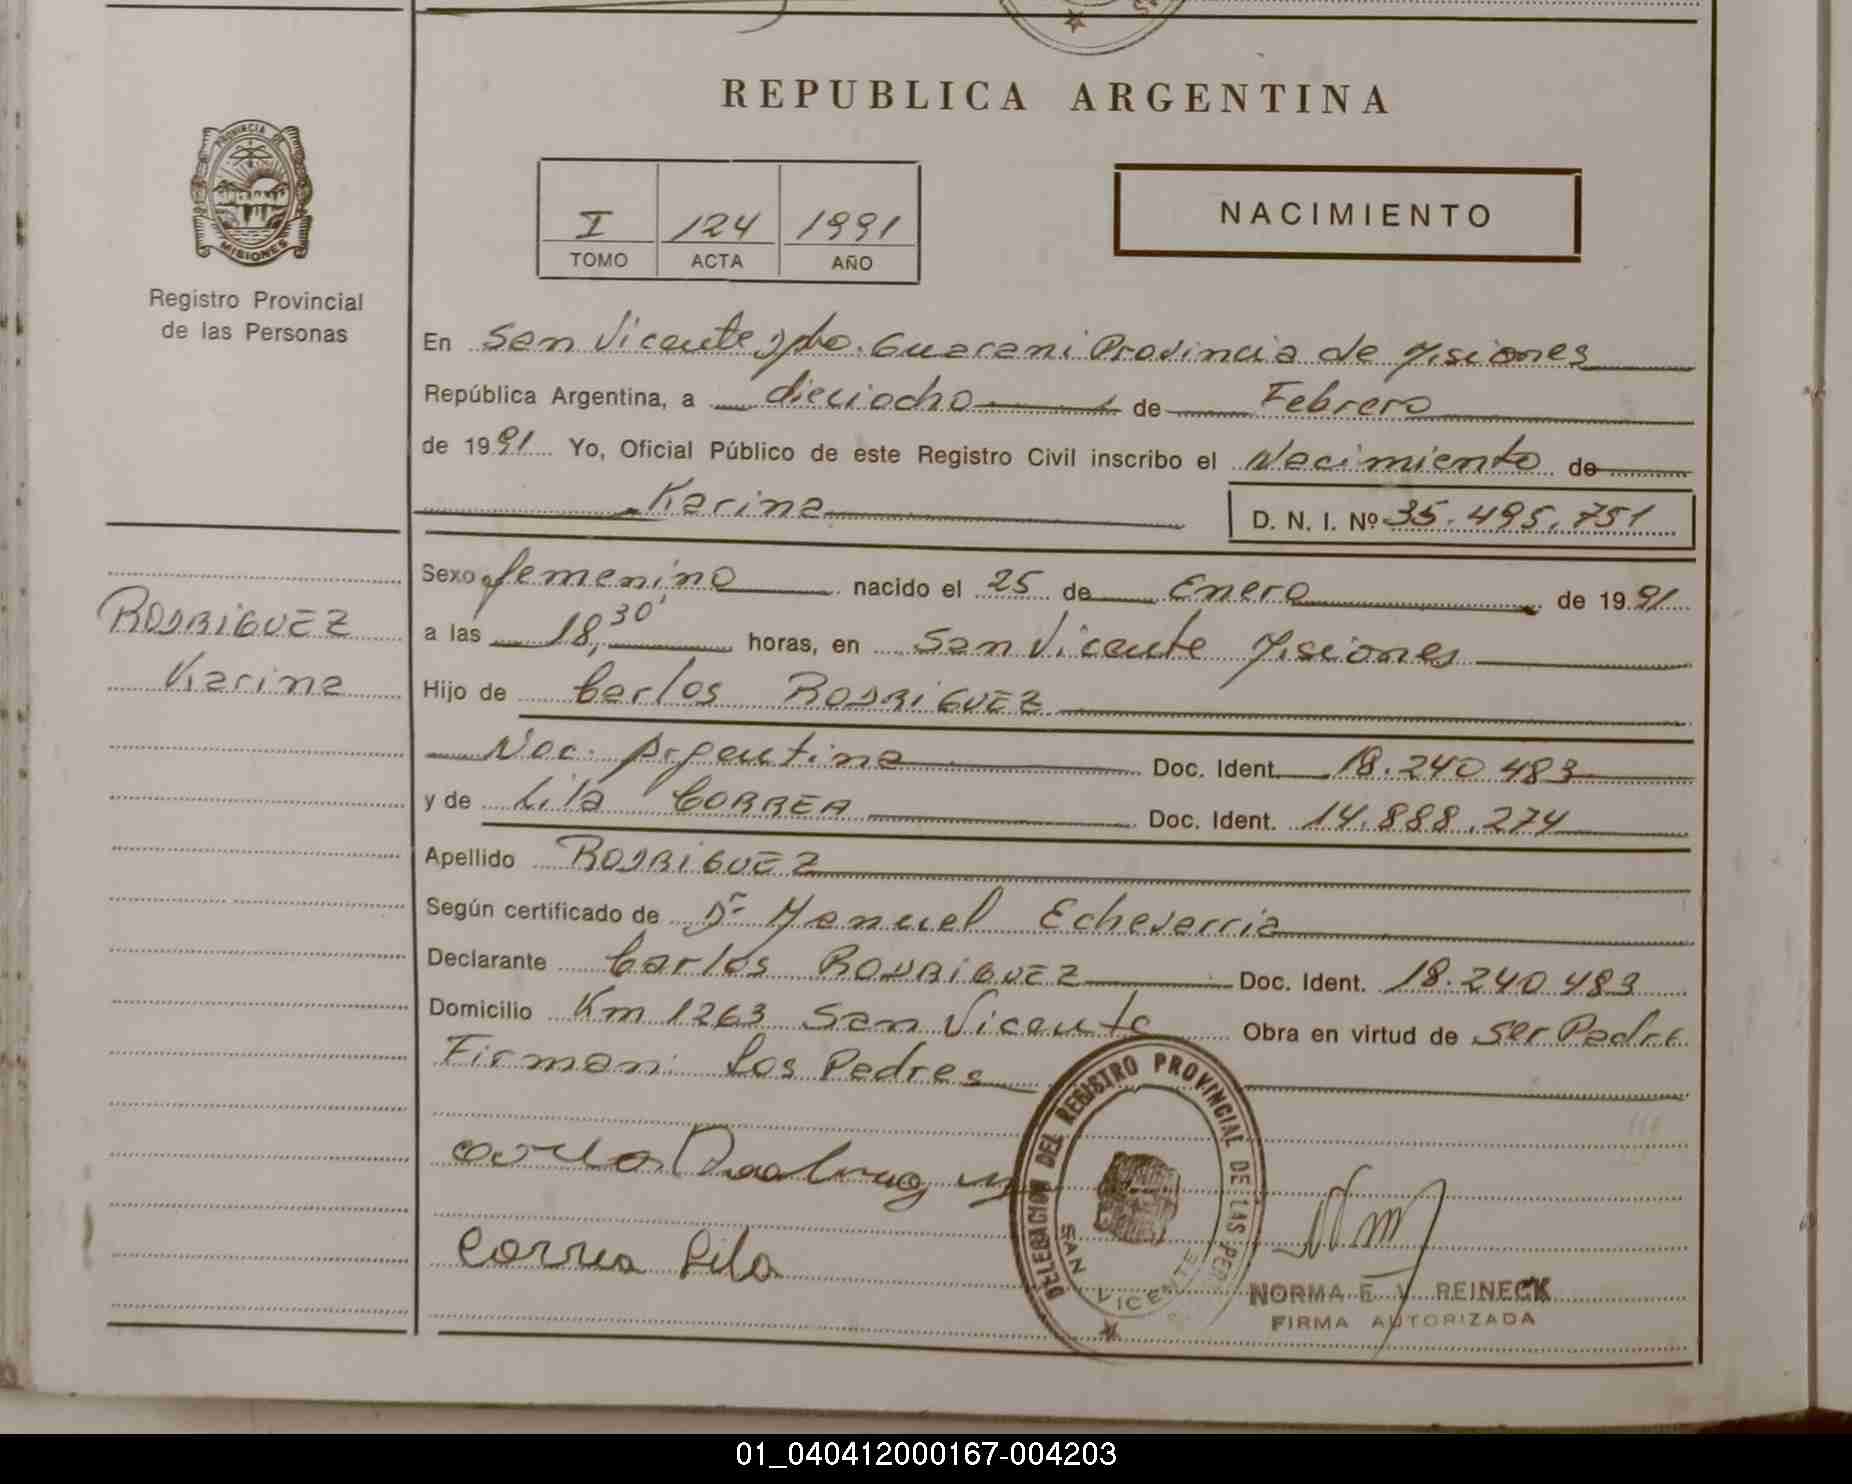 REPUBLICA ARGENTINA
PROVINCIA DE
MISIONES
Registro Provincial
de las Personas
I 124 1991
TOMO ACTA AÑO
NACIMIENTO
En San Vicente Dpto. Guarani Provincia de Misiones
República Argentina, a dieciocho de Febrero
de 1991 Yo, Oficial Público de este Registro Civil inscribo el Nacimiento de
Karina D. N. I. Nº 35.495.751
Sexo femenino nacido el 25 de Enero de 1991
RODRIGUEZ
Karina
a las 18,30' horas, en San Vicente Misiones
Hijo de Carlos RODRIGUEZ
Nac. Argentina Doc. Ident. 18.240 483
y de Lila CORREA Doc. Ident. 14.888.274
Apellido RODRIGUEZ
Según certificado de Dr Manuel Echeverria
Declarante Carlos RODRIGUEZ Doc. Ident. 18.240 483
Domicilio Km 1263 San Vicente Obra en virtud de Ser Padre
Firman Los Padres
Correa Lila
DELEGACION DEL REGISTRO PROVINCIAL DE LAS PER
SAN VICENTE
NORMA E. V. REINECK
FIRMA AUTORIZADA
01_040412000167-004203